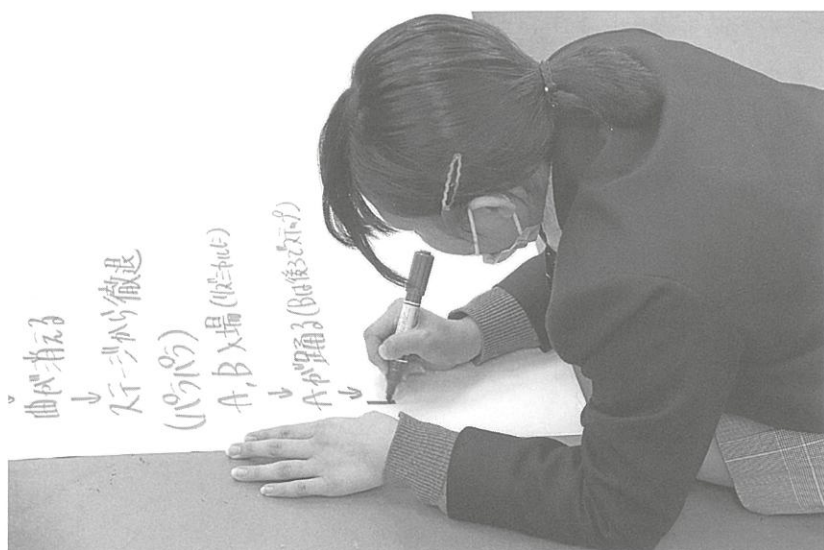 ↓
曲が消える
↓
ステージから徹退
(パラパラ)
A,B 入場(リズミカルに)
↓
Aが踊る(Bは後ろでステップ)
↓